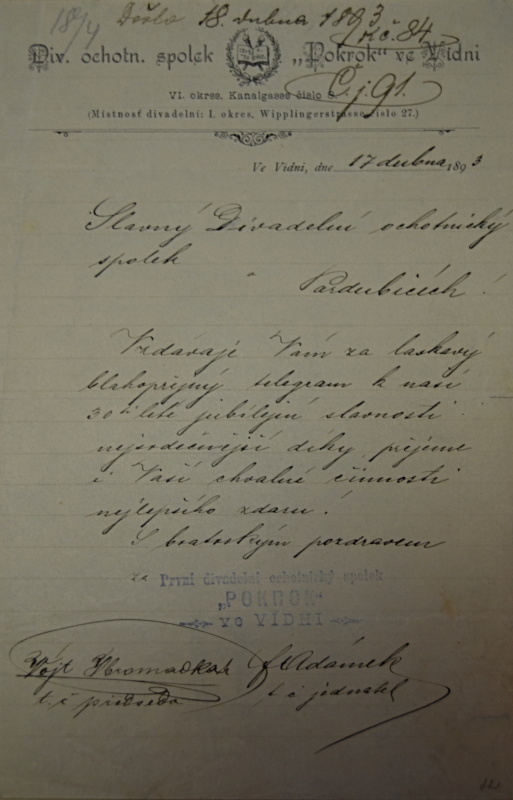 18/4 Došlo 18. dubna 1893
č. 84
Div. ochotn. spolek „Pokrok“ ve Vídni
VI. okres, Kanalgasse číslo
Č. j. 91.
(Místnosť divadelní: I. okres, Wipplingerstrasse číslo 27.)
Ve Vídni, dne 17 dubna 1893
Slavný Divadelní ochotnický
spolek
Pardubicích!
Vzdávaje Vám za laskavý
blahopřejný telegram k naší
30ti leté jubilejní slavnosti
nejsrdečnější díky, přejeme
i Vaší chvalné činnosti
nejlepšího zdaru!
S bratrským pozdravem
za První divadelní ochotnický spolek
„POKROK“
ve VÍDNI
Vojt. Hromádka F. Adámek
t. č. předseda t. č. jednatel